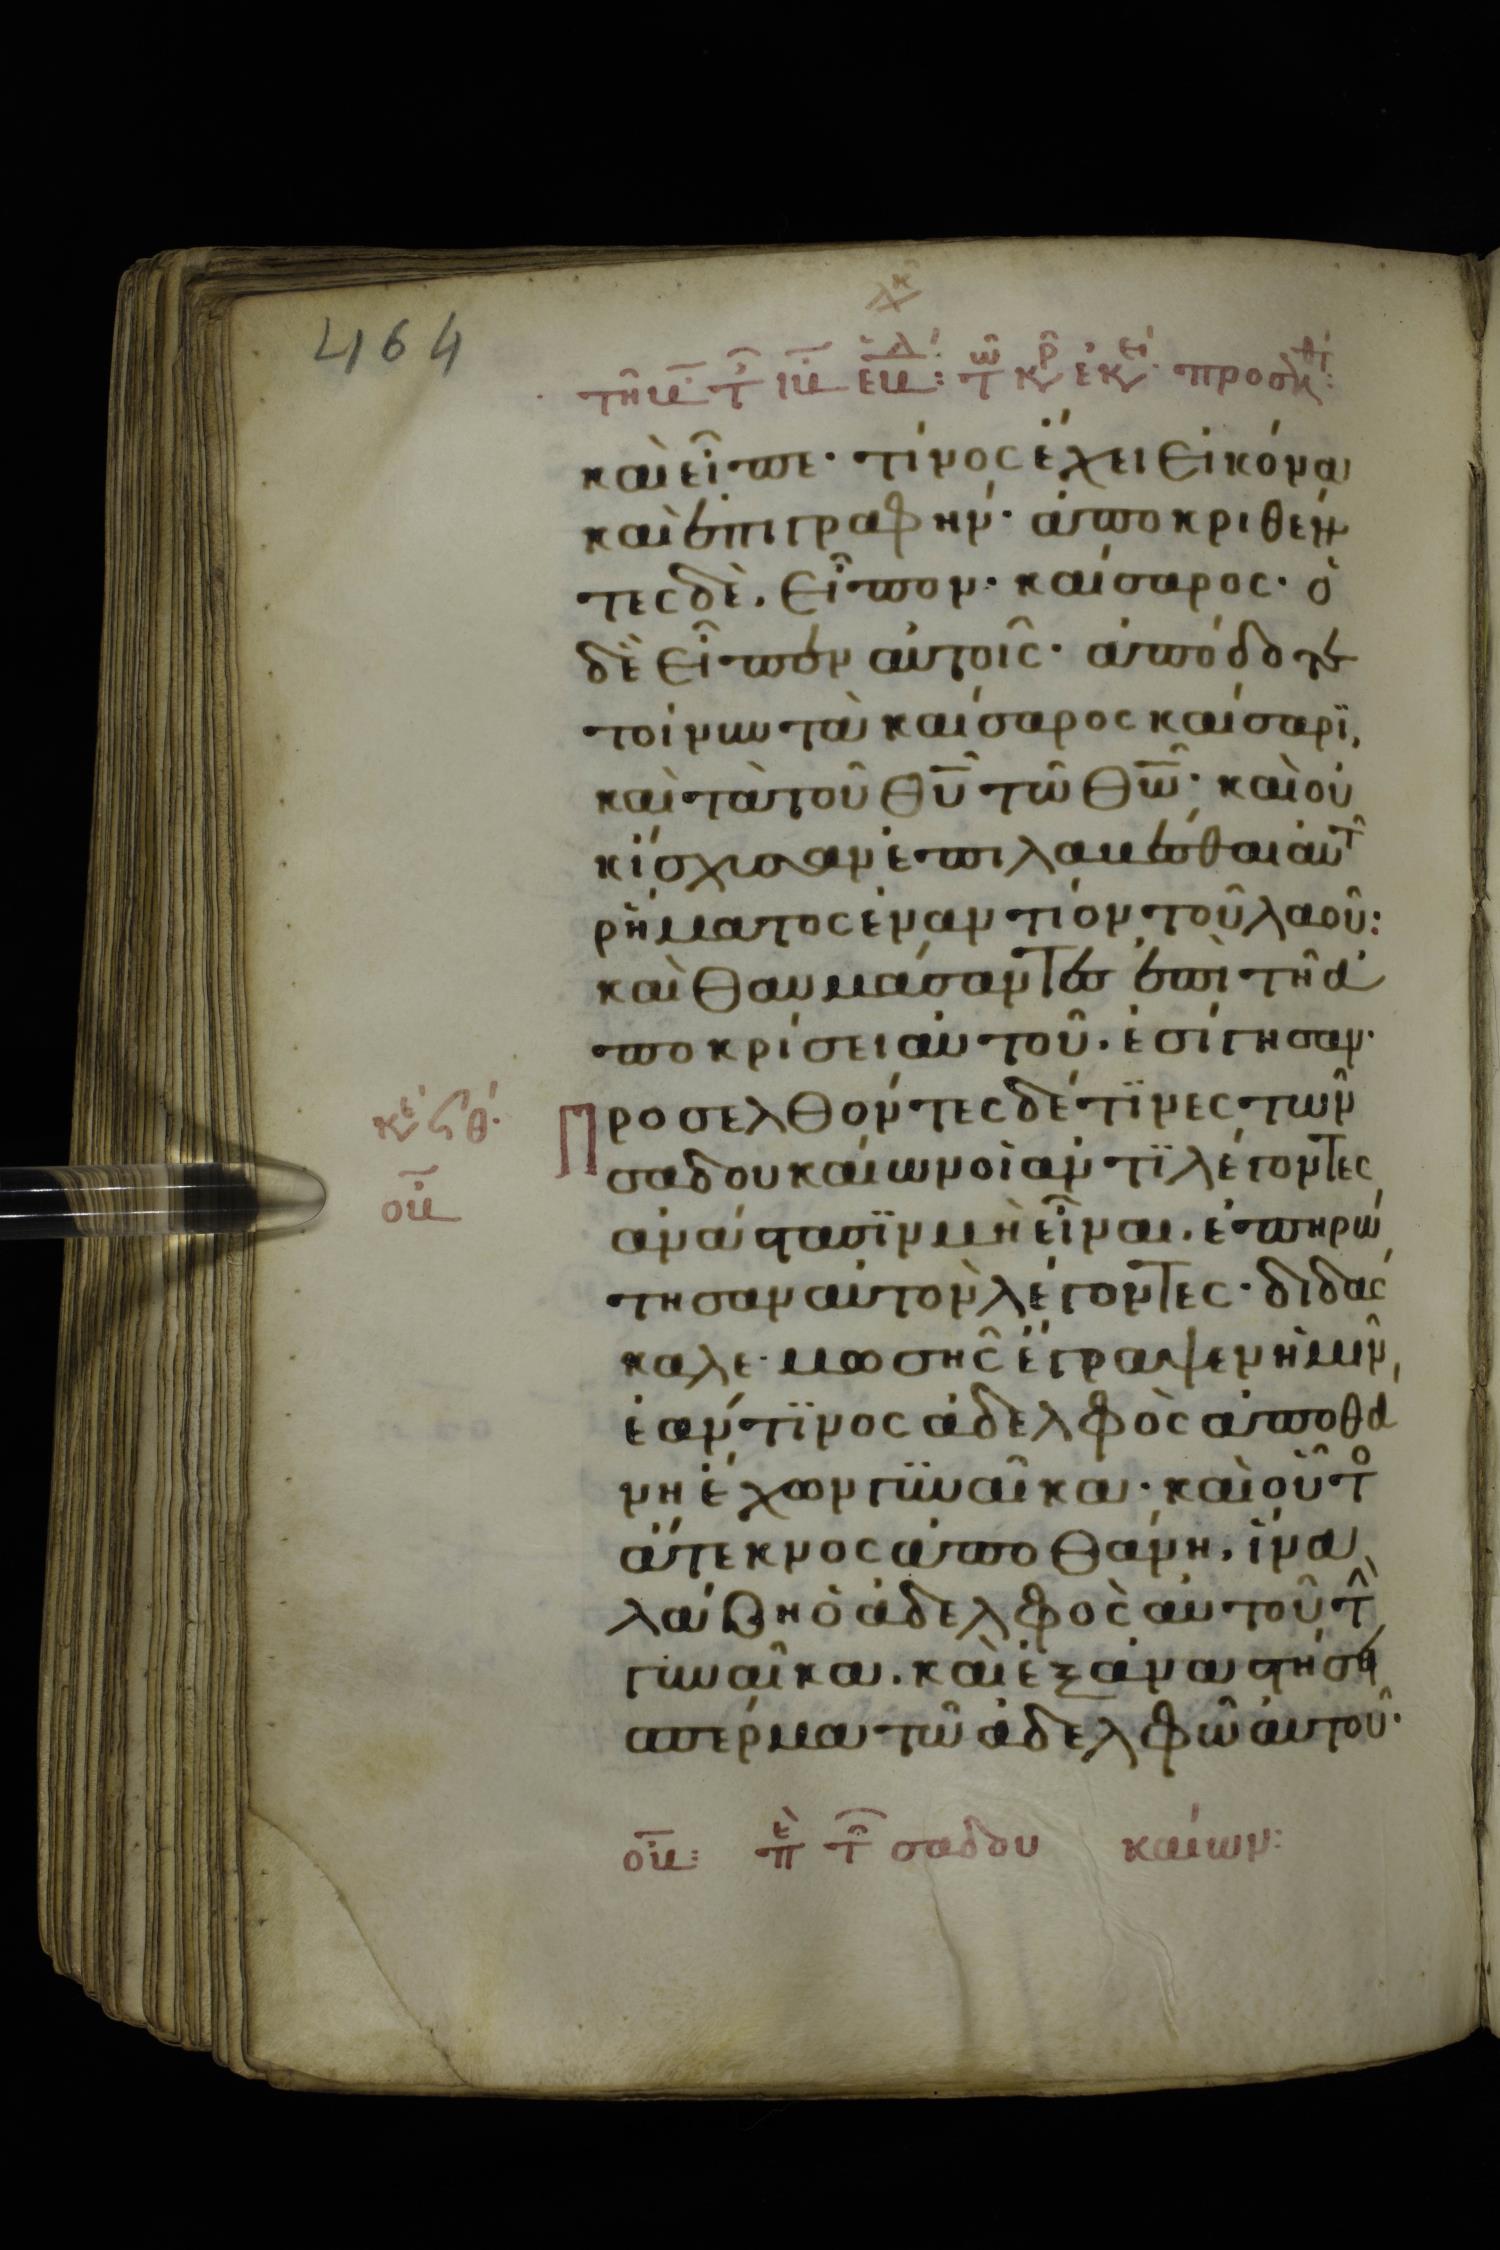 464
καὶ εἶπε· τίνος ἔχει εἰκόνα
καὶ ἐπιγραφήν· ἀποκριθέν
τες δὲ, εἶπον· καίσαρος· ὁ
δὲ εἶπεν αὐτοῖς· ἀπόδοτε
τοίνυν τὰ καίσαρος καίσαρϊ,
καὶ τὰ τοῦ θυ τῶ θω· καὶ οὐ
κ ἴσχυσαν ἐπιλαβέσθαι αὐτ
ρήματος ἐναντίον τοῦ λαοῦ:
καὶ θαυμάσαντες ἐπὶ τῆ ἀ
ποκρίσει αὐτοῦ. ἐσίγησαν·
Προσελθόντες δέ τϊνες τῶν
σαδουκαίων οἱ ἀντϊλέγοντες
ἀνάστασϊν μὴ εἶναι. ἐπηρώ
τησαν αὐτὸν λέγοντες· διδάσ
καλε· μωσῆς ἔγραψεν ἡμῖν,
ἐάν τϊνος ἀδελφὸς ἀποθά
νη ἔχων γϋναῖκα· καὶ οὗτο
ἄτεκνος ἀποθάνη, ἵνα
λάβη ὁ ἀδελφὸς αὐτοῦ τὴν
γυναῖκα. καὶ ἐξαναστήση
σπέρμα τῶ ἀδελφῶ αὐτοῦ·
σαδδου καίων: